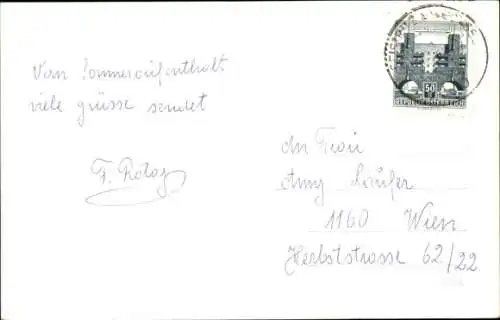 Vom Sommeraufenthalt
viele grüsse sendet
F. Rotag
50
REPUBLIK ÖSTERREICH
An Frau
Amy Laufer
1160 Wien
Herbststrasse 62/22